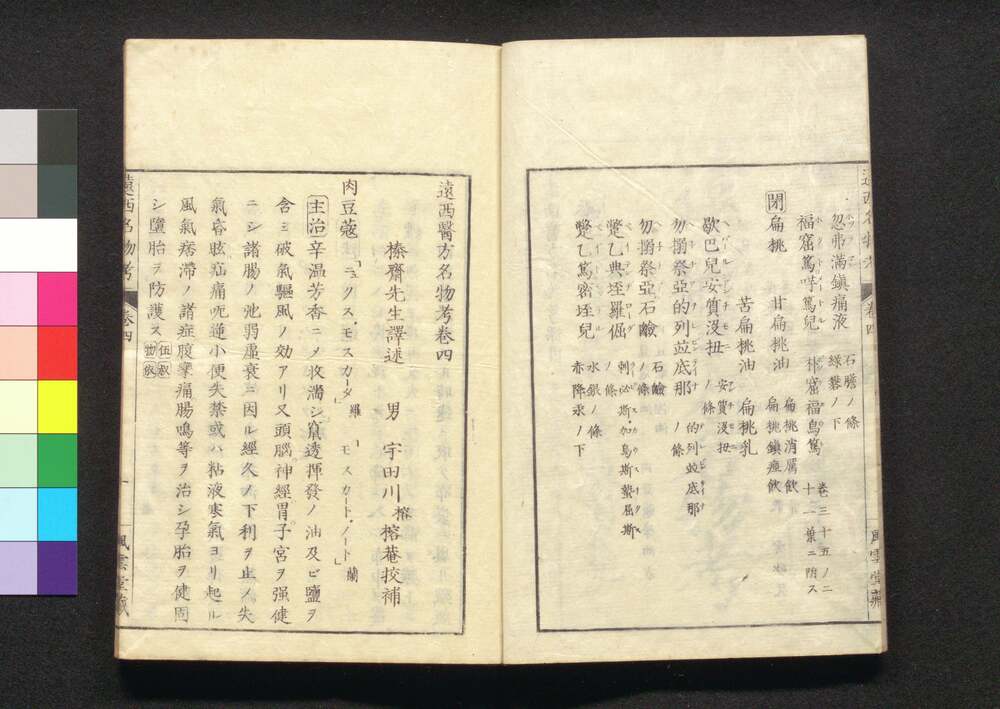 忽弗満鎮痛液 石膽ノ條 緑礬ノ下
福窟篤吽篤兒 朴窟福烏篤 巻三十五ノ二十一葉ニ附ス
閉
扁桃 甘扁桃油 扁桃消厲飲 扁桃鎮痙飲
苦扁桃油 扁桃乳
歇巴兒安質没扭 安質没扭ノ條
勿搦祭亞的列並底那 的列並底那ノ條
勿搦祭亞石鹼 石鹼ノ條
蹩乙典垤羅倔 刺必斯加烏斯蟄屈斯ノ條
蹩乙篤密垤兒 水銀ノ條 赤降汞ノ下
遠西名物考 巻四 風雲堂藏
遠西醫方名物考巻四
榛齋先生譯述 男 宇田川榕 榕菴挍補
肉豆蔻 「ニュクス・モスカータ」羅 「モスカート・ノート」蘭
主治 辛温芳香ニメ收濇シ竄透揮發ノ油及ビ鹽ヲ
含ミ破氣驅風ノ効アリ又頭腦神經胃子宮ヲ强健
ニシ諸腸ノ弛弱虚衰ニ因ル經久ノ下利ヲ止メ失
氣昏眩疝痛呃逆小便失禁或ハ粘液寒氣ヨリ起ル
風氣痞滞ノ諸症腹攣痛腸鳴等ヲ治シ孕胎ヲ健固
シ墮胎ヲ防護ス
遠西名物考 巻四 一 風雲堂藏